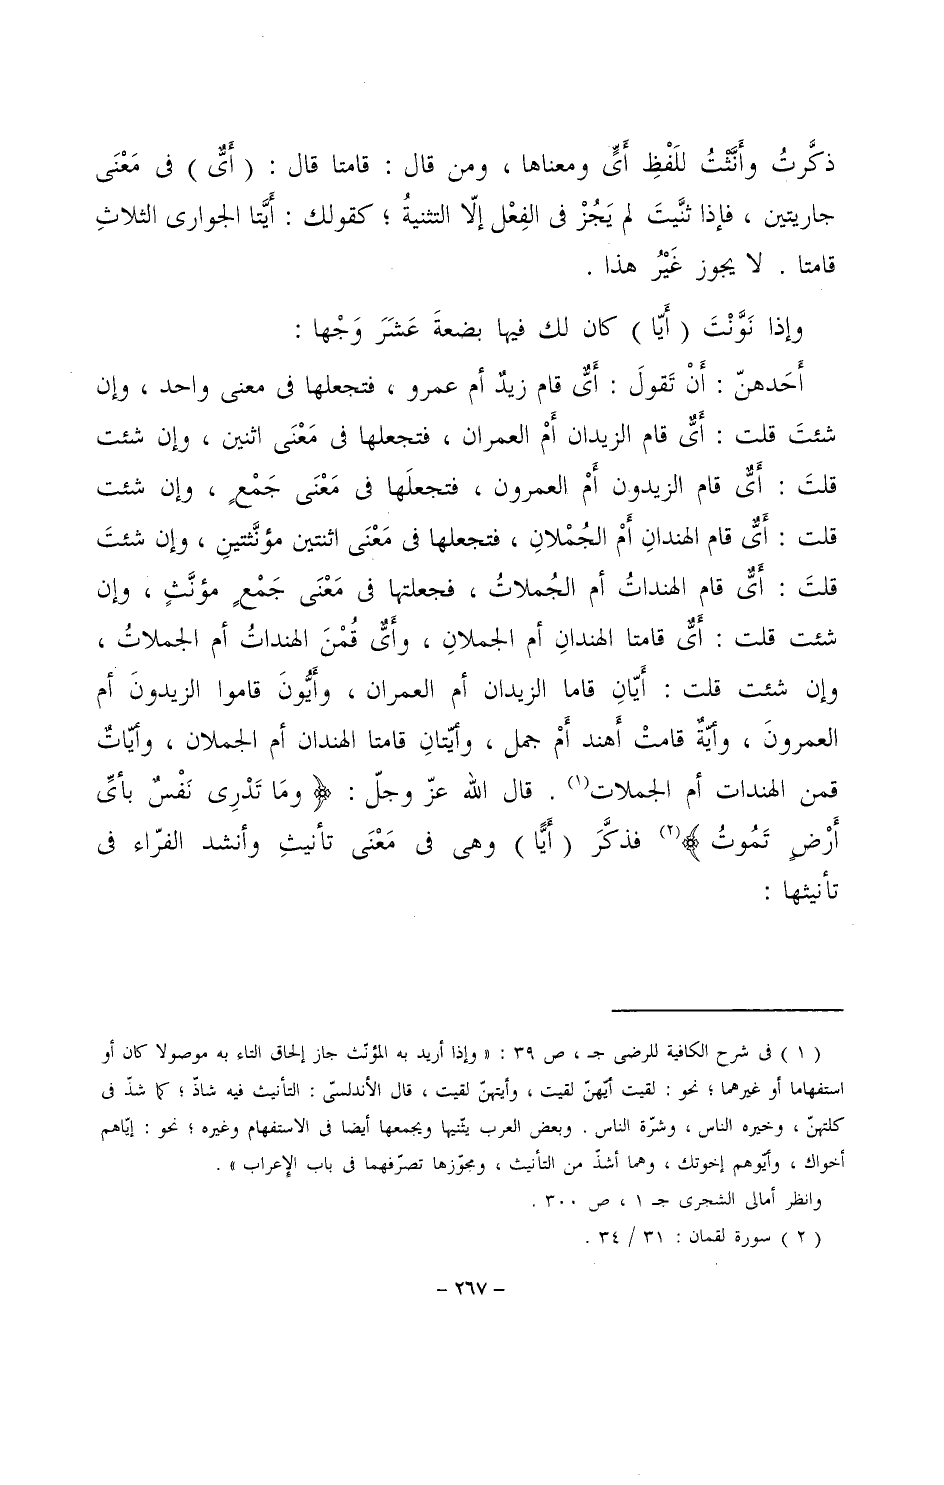 ذكَّرتُ وأَنَّثْتُ للَفْظِ أَىٍّ ومعناها ، ومن قال : قامتا قال : ( أَىٌّ ) فى مَعْنَى
جاريتين ، فإذا ثنَّيتَ لم يَجُزْ فى الفِعْل إلّا التثنيةُ ؛ كقولك : أيَّتا الجوارى الثلاثِ
قامتا . لا يجوز غَيْرُ هذا .
وإذا نَوَّنْتَ ( أَيّا ) كان لك فيها بضعةَ عَشَرَ وَجْها :
أَحَدهنّ : أَنْ تَقولَ : أَىٌّ قام زيدٌ أم عمرو ، فتجعلها فى معنى واحد ، وإن
شئتَ قلت : أَىٌّ قام الزيدان أَمْ العمران ، فتجعلها فى مَعْنَى اثنين ، وإن شئت
قلتَ : أَىٌّ قام الزيدون أمْ العمرون ، فتجعلَها فى مَعْنَى جَمْعٍ ، وإن شئت
قلت : أَىٌّ قام الهندانِ أَمْ الجُمْلانِ ، فتجعلها فى مَعْنَى اثنتين مؤنَّثتينِ ، وإن شئتَ
قلتَ : أَىٌّ قام الهنداتُ أم الجُملاتُ ، فجعلتها فى مَعْنَى جَمْعٍ مؤنَّثٍ ، وإن
شئت قلت : أَىٌّ قامتا الهندانِ أم الجملانِ ، وأَىٌّ قُمْنَ الهنداتُ أم الجملاتُ ،
وإن شئت قلت : أَيّانِ قاما الزيدان أم العمران ، وأَيُّونَ قاموا الزيدونَ أم
العمرونَ ، وأيةٌ قامتْ أهند أمْ جمل ، وأيّتانِ قامتا الهندان أم الجملان ، وأيّاتٌ
قمن الهندات أم الجملات(١) . قال الله عزّ وجلّ : ﴿ ومَا تَدْرِى نَفْسٌ بأىِّ
أَرْضٍ تَمُوتُ ﴾(٢) فذكَّرَ ( أيًّا ) وهى فى مَعْنَى تأنيثِ وأنشد الفرّاء فى
تأنيثها :
( ١ ) فى شرح الكافية للرضى جـ ، ص ٣٩ : « وإذا أريد به المؤنّث جاز إلحاق التاء به موصولا كان أو
استفهاما أو غيرهما ؛ نحو : لقيت أيّهنّ لقيت ، وأيتهنّ لقيت ، قال الأندلسىّ : التأنيث فيه شاذّ ؛ كما شذّ فى
كلتهنّ ، وخيره الناس ، وشرّة الناس . وبعض العرب يثّنيها ويجمعها أيضا فى الاستفهام وغيره ؛ نحو : إيّاهم
أخواك ، وأيّوهم إخوتك ، وهما أشذّ من التأنيث ، ومجوّزها تصرّفهما فى باب الإعراب » .
وانظر أمالى الشجرى جـ ١ ، ص ٣٠٠ .
( ٢ ) سورة لقمان : ٣١ / ٣٤ .
– ٢٦٧ –